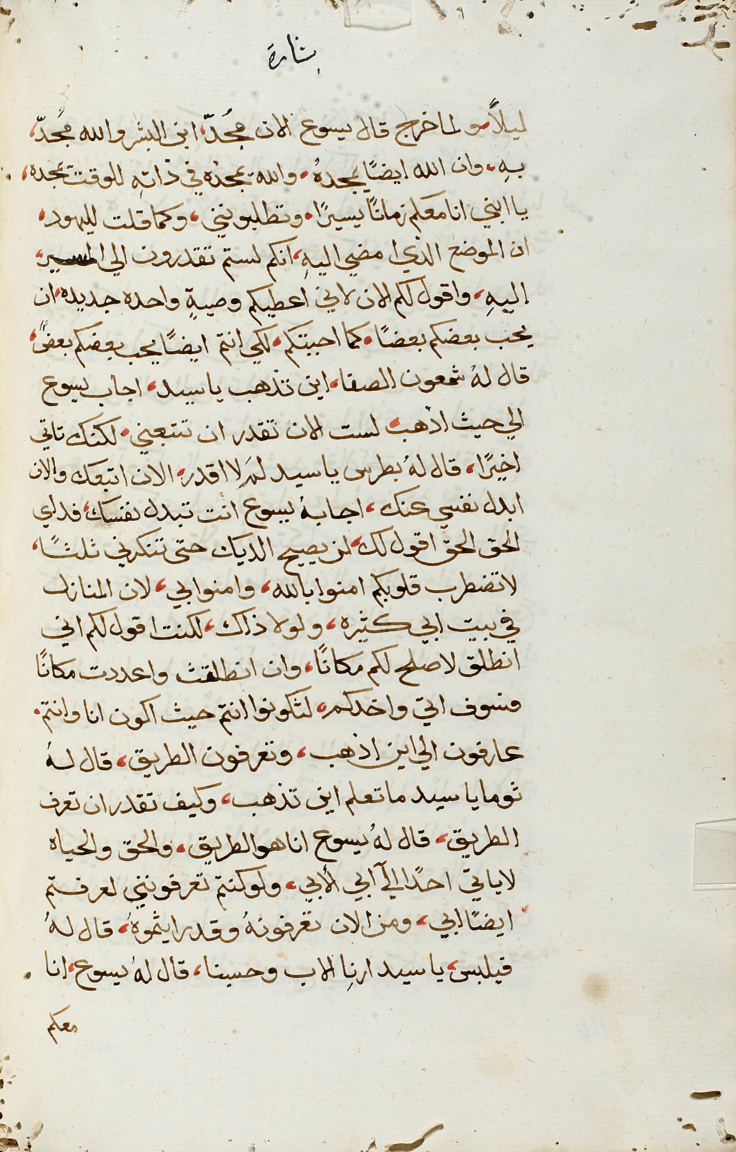 بشارة
ليلاً ولما خرج قال يسوع الان مُجدّ، ابن البشر والله مُجدّ،
بهِ، وان الله ايضًا يمجدهُ، والله يمجدُه في ذاتهِ للوقت يمجده،
يا ابني انا معكم زمانًا يسيرًا، وتطلبونني، وكما قلت لليهود،
ان الموضع الذي امضي اليهِ، انكم لستم تقدرون الي المسير،
اليهِ، واقول لكم الان لاني اعطيكم وصيةٍ واحده جديده، ان
يحب بعضكم بعضًا، كما احببتكم، لكي انتم ايضًا يحب بعضكم بعضً،
قال لهُ شمعون الصفا، اين تذهب يا سيد، اجاب يسوع
الي حيث اذهب، لست الان تقدر ان تتبعني، لكنك تاتي
اخيرًا، قال لهُ بطرس يا سيد لمَ لا اقدر، الان اتبعك والان
ابدل نفسي عنك، اجابهُ يسوع انت تبدل نفسك، فدلي
الحق الحق اقول لك، لن يصيح الديك حتى تنكرني ثلثًا،
لا تضطرب قلوبكم امنوا بالله، وامنوا بي، لان المنازل
في بيت ابي كثيره، ولولا ذاك، لكنت اقول لكم اني
انطلق لاصلح لكم مكانًا، وان انطلقت واعددت مكانًا
فسوف اتي واخدكم، لتكونوا انتم حيث اكون انا وانتم،
عارفون الي اين اذهب، وتعرفون الطريق، قال لهُ
ثوما يا سيد ما نعلم اين تذهب، وكيف نقدر ان نعرف
الطريق، قال لهُ يسوع انا هو الطريق، والحق والحياه
لا ياتي احدًا الي آبي الأبي، ولو كنتم تعرفونني لعرفتم
ايضًا ابي، ومن الان تعرفونهُ وقد رايتموهُ، قال لهُ
فيلبس، يا سيد ارنا الاب وحسبنا، قال لهُ يسوع، انا
معكم